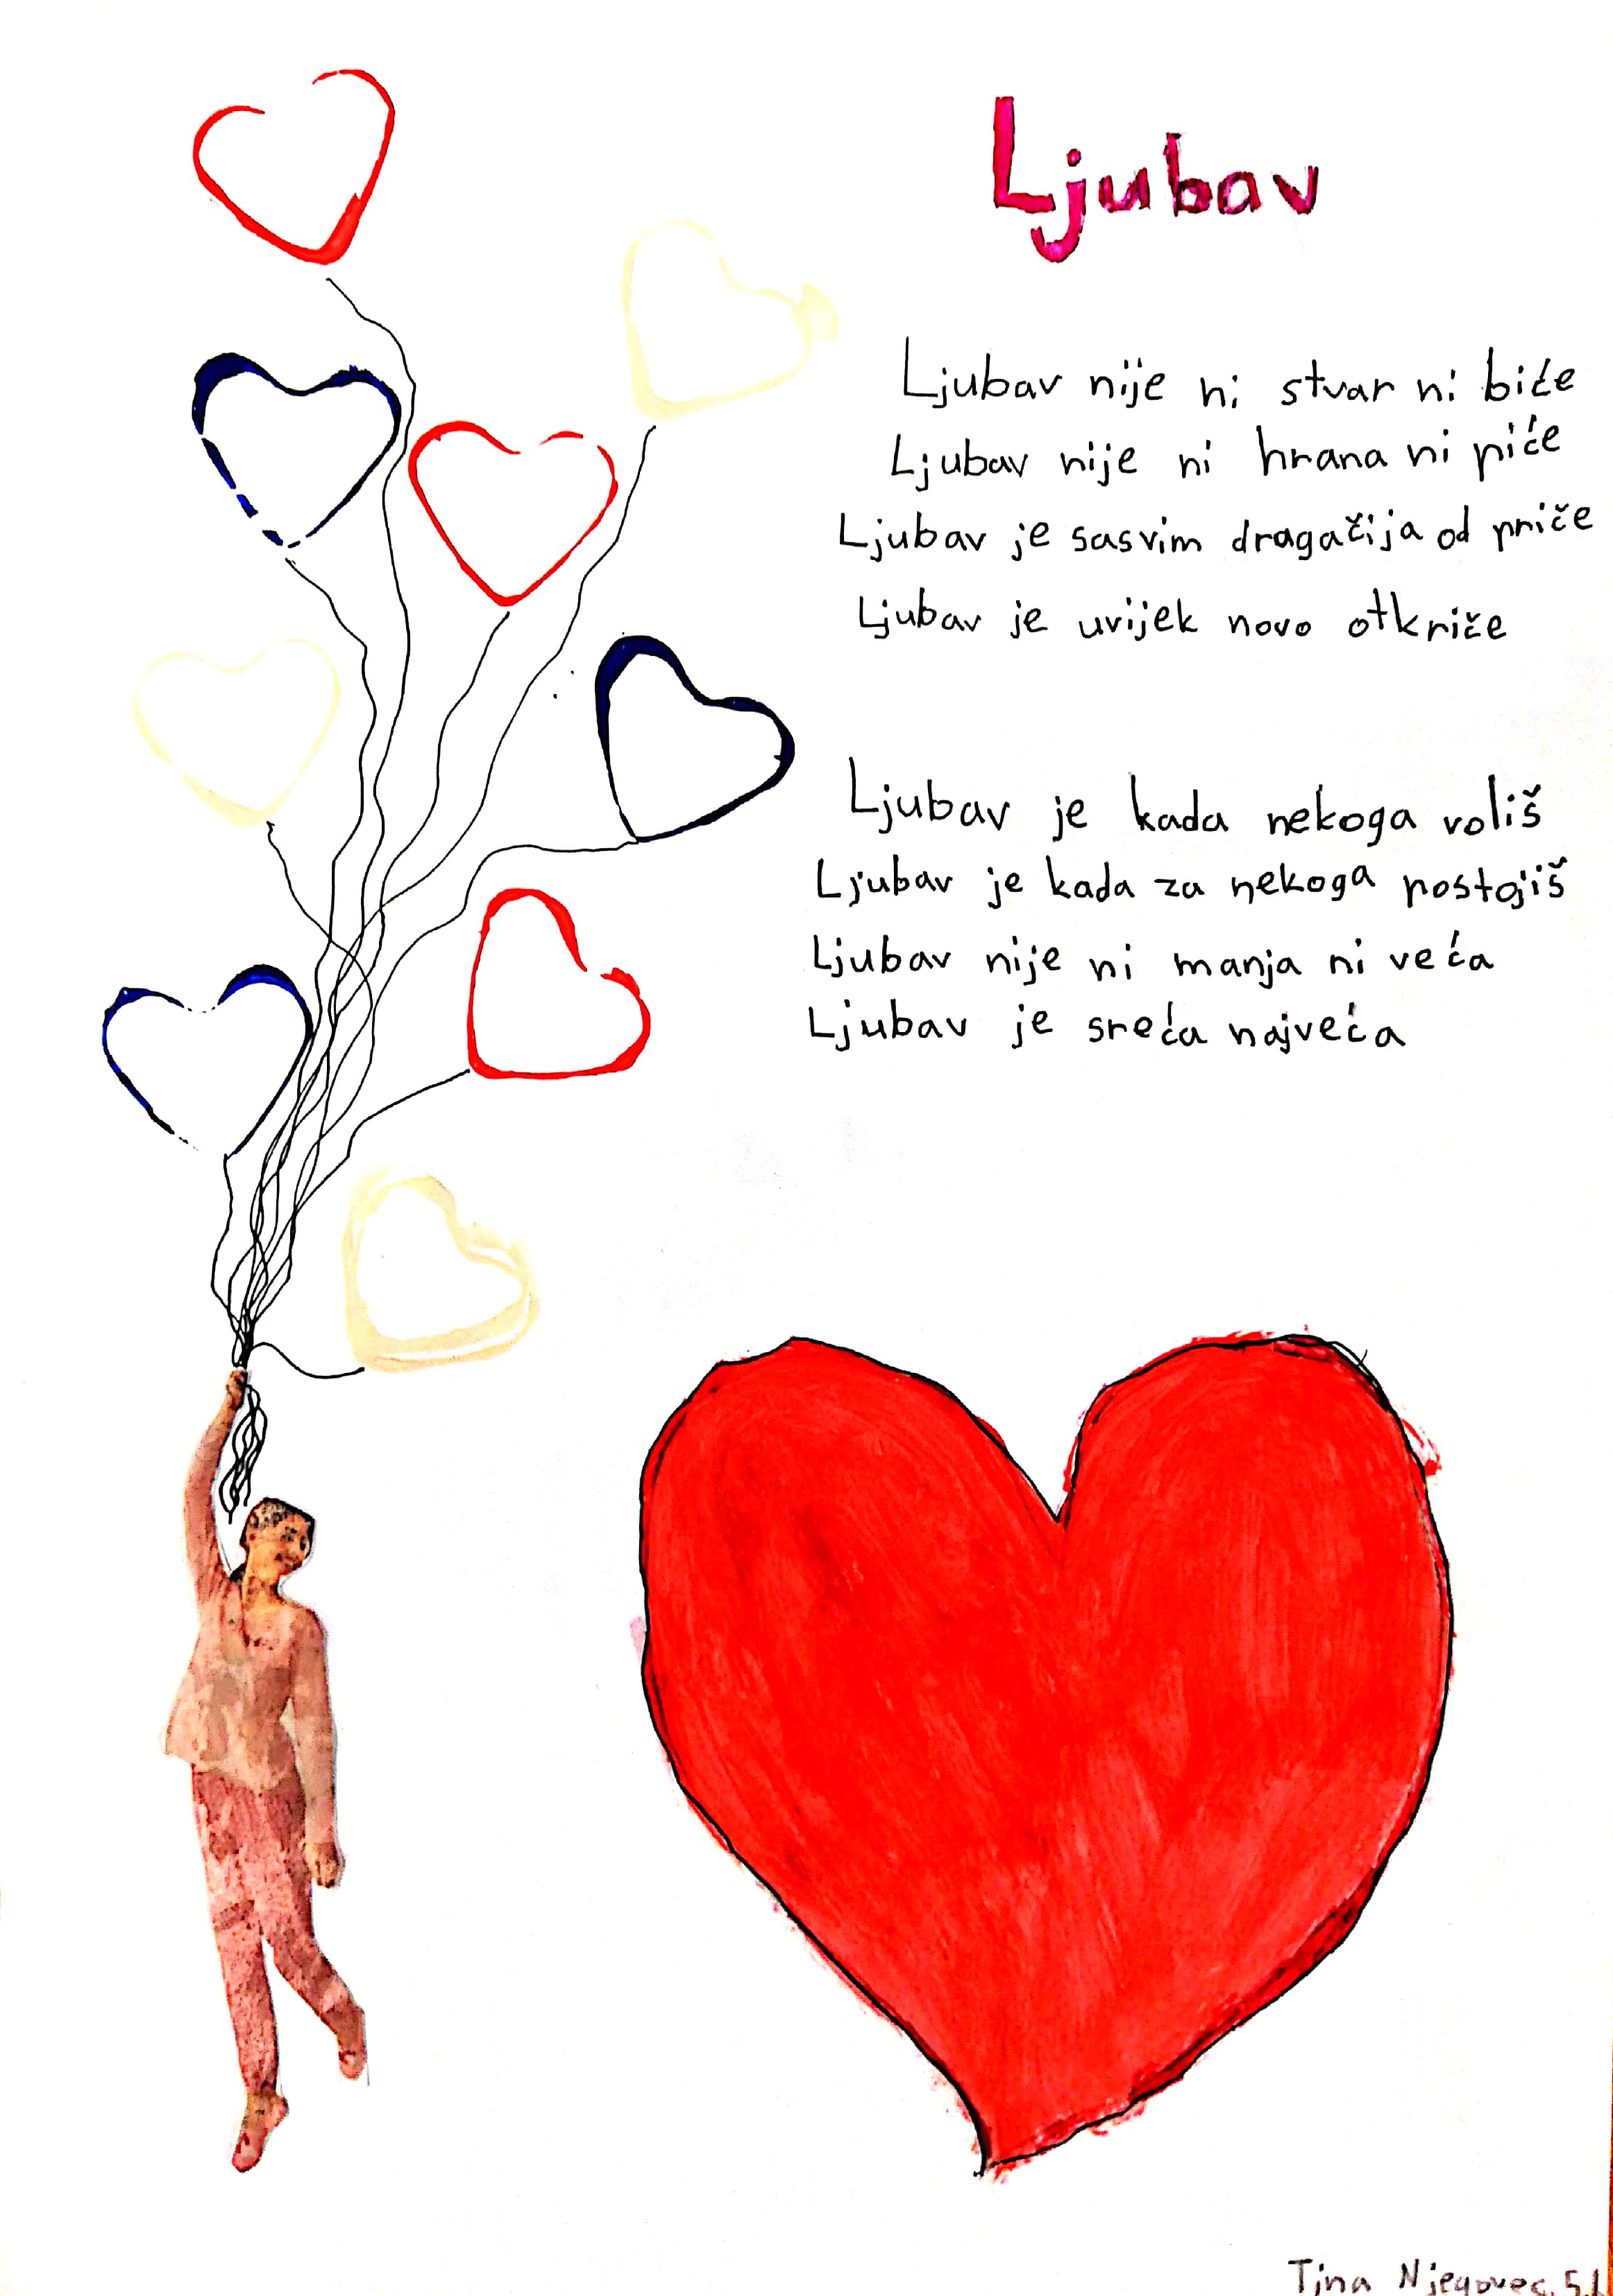 Ljubav
Ljubav nije ni stvar ni biće
Ljubav nije ni hrana ni piće
Ljubav je sasvim dragačija od priče
Ljubav je uvijek novo otkriče
Ljubav je kada nekoga voliš
Ljubav je kada za nekoga postojiš
Ljubav nije ni manja ni veća
Ljubav je sreća najveća
Tina Njegovec, 5.